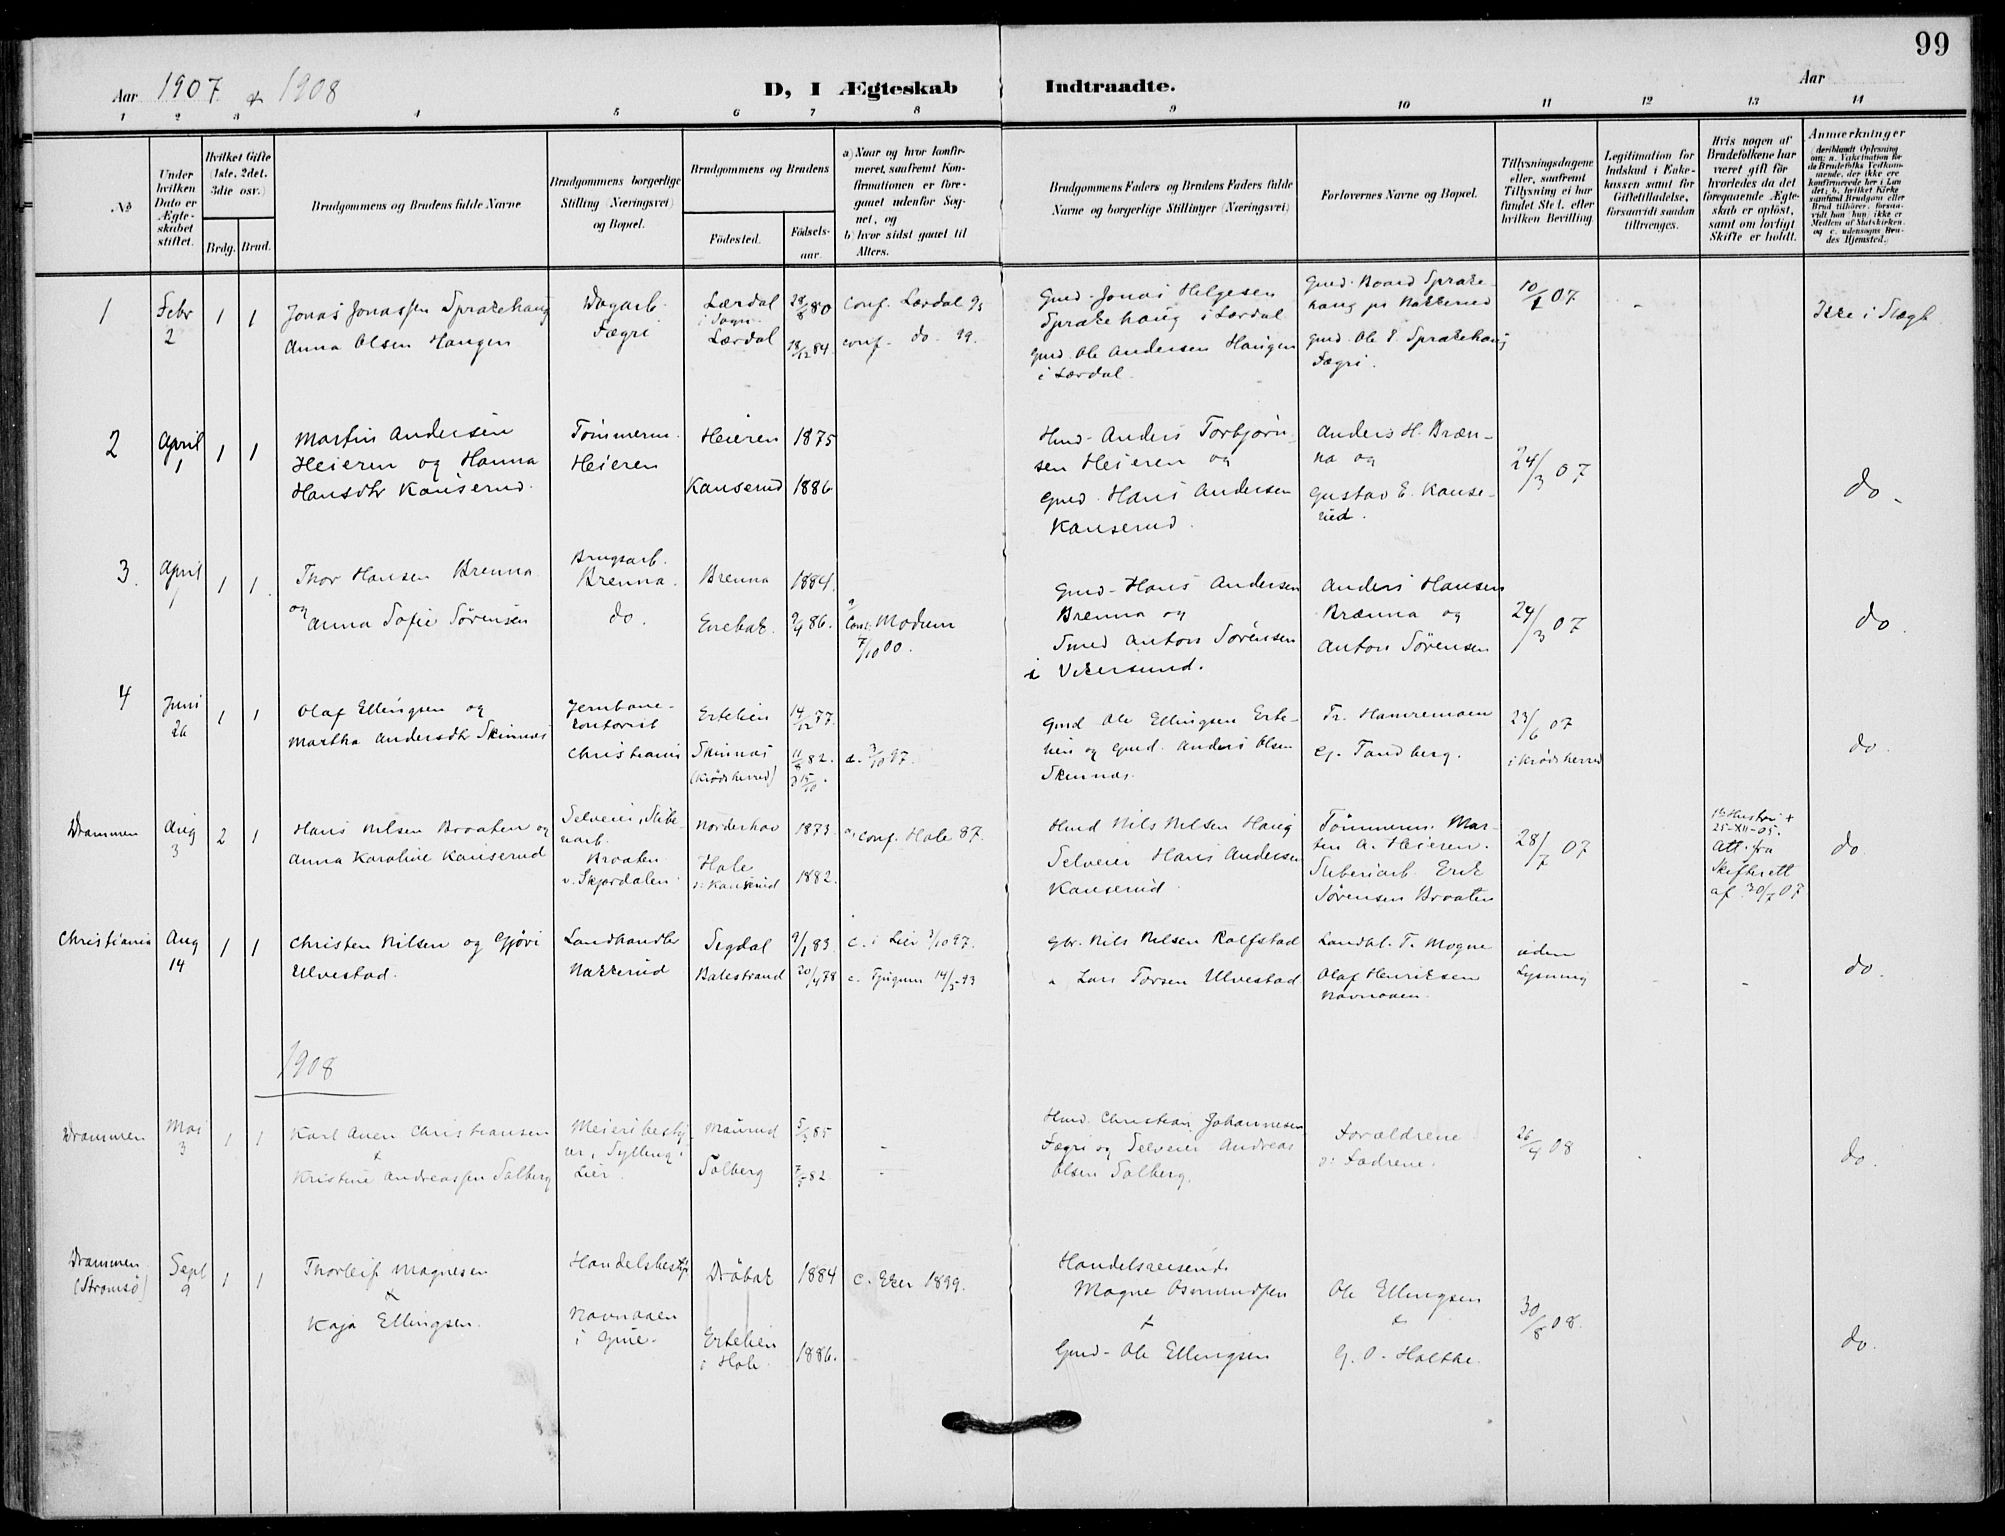 99
Aar 1907 & 1908
D, I Ægteskab Indtraadte.
Aar
1 2 3 4 5 6 7 8 9 10 11 12 13 14
№
Under hvilken Dato er Ægteskabet stiftet.
Hvilket Gifte (1ste, 2det, 3die osv.)
Brdg. Brud.
Brudgommens og Brudens fulde Navne
Brudgommens borgerlige Stilling (Næringsvei) og Bopæl.
Brudgommens og Brudens
Fødested.
Fødselsaar.
a) Naar og hvor konfirmeret, saafremt Konfirmationen er foregaaet udenfor Sognet, og
b) hvor sidst gaaet til Alters.
Brudgommens Faders og Brudens Faders fulde Navne og borgerlige Stillinger (Næringsvei)
Forlovernes Navne og Bopæl.
Tillysningsdagene eller, saafremt Tillysning ei har fundet Sted, efter hvilken Bevilling.
Legitimation for Indskud i Enkekassen samt for Giftetilladelse, forsaavidt saadan tiltrænges.
Hvis nogen af Brudefolkene har været gift før hvorledes da det foregaaende Ægteskab er opløst, samt om lovligt Skifte er holdt.
Anmærkninger
1
Febr 2
1 1
Jonas Jonassen Sprakehaug
Anna Olsen Haugen
Dagarb.
Fægri
Lærdal i Sogn
Lærdal
28/8 80
18/12 84.
conf. Lærdal 95
conf. do. 99.
Gmd. Jonas Helgesen
Sprakehaug i Lærdal
Gmd. Ole Andersen Haugen
i Lærdal.
Gmd. Baard Sprakehaug pr Nakkerud
Gmd. Ole P. Sprakehaug
Fægri.
10/1 07
Ikke i Slægt
2
April 1
1 1
Martin Andersen
Heieren og Hanna
Hansdtr Kanserud.
Tømmerm.
Heieren
Heieren
Kanserud
1875
1886
Hmd. Anders Torbjørnsen Heieren og
Gmd. Hans Andersen
Kanserud.
Anders H. Brænna og
Gustav E. Kanserud.
24/3 07
do.
3.
April 1
1 1.
Thor Hansen Brenna
og Anna Sofie Sørensen
Brugsarb.
Brenna.
do.
Brenna
1884.
9/4 86.
Conf. Modum
7/10 00.
Gmd. Hans Andersen
Brenna og
Smed Anton Sørensen
i Vikersund.
Anders Hansen
Brænna og
Anton Sørensen
24/3 07
do.
4
Juni 26
1 1
Olaf Ellingsen og
Martha Andersdtr Skinnes
Jernbanekontorist
Christiania
Ertelien
Skinnes
(Krødsherred)
14/12 77
11/8 82.
Gmd Ole Ellingsen Ertelien og Gmd. Anders Olsen
Skinnes.
Tr. Hamremoen
G. Tandberg.
23/6 07
i Krødsherred
do.
Drammen
Aug 3
2 1
Hans Nilsen Braaten og
Anna Karoline Kanserud
Selveier, Sliberiarb.
Braaten
v. Skjærdalen
Norderhov
Hole
v. Kanserud
1873.
1882.
a, conf. Hole 87.
Hmd Nils Nilsen Haug
Selveier Hans Andersen
Kanserud.
Tømmerm. Martin A. Heieren.
Sliberiarb. Erik
Sørensen Braaten
28/7 07
1ste Hustru +
25-XII-05.
Att. fra
Skifterett
af 30/7 07
do.
Christiania
Aug 14
1 1
Christen Nilsen og Gjøri
Ulvestad.
Landhandler
Nakkerud
Sigdal
Balestrand
9/1 83
20/4 78
c. i Lier 3/10 97.
c. Tjugum 14/5 93
Gbr. Nils Nilsen Kolfstad
" Lars Torsen Ulvestad
Landhl. T. Mogne
Olaf Henriksen
Navnaaen.
uden
Lysning
do.
1908
Drammen
Mai 3
1 1
Karl Aven Christiansen
&
Kristine Andreassen Solberg
Meieribestyrer, Sylling i
Lier.
Maurud
Solberg
5/3 85
7/5 82
Hmd. Christian Johannesen
Fægri og Selveier Andreas
Olsen Solberg.
Forældrene
ɔ: Fædrene.
26/4 08
do.
Drammen
(Strømsø)
Sept 9
1 1
Thorleif Magnesen
&
Kaja Ellingsen.
Handelsbestyr
Navnaaen
i Grue.
Drøbak
Ertelien
i Hole.
1884
1886.
c. Eker 1899.
Handelsreisende
Magne Osmundsen
&
Gmd. Ole Ellingsen
Ole Ellingsen
&
G. O. Holthe.
30/8 08.
do.